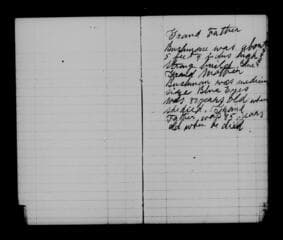 Grand Father
Bushman was about
5 feet 9 inches high
strong
Grand Mother
Bushman was medium
size Blue Eyes
was years old when
she died. Grand
Father was 95 years
old when he died